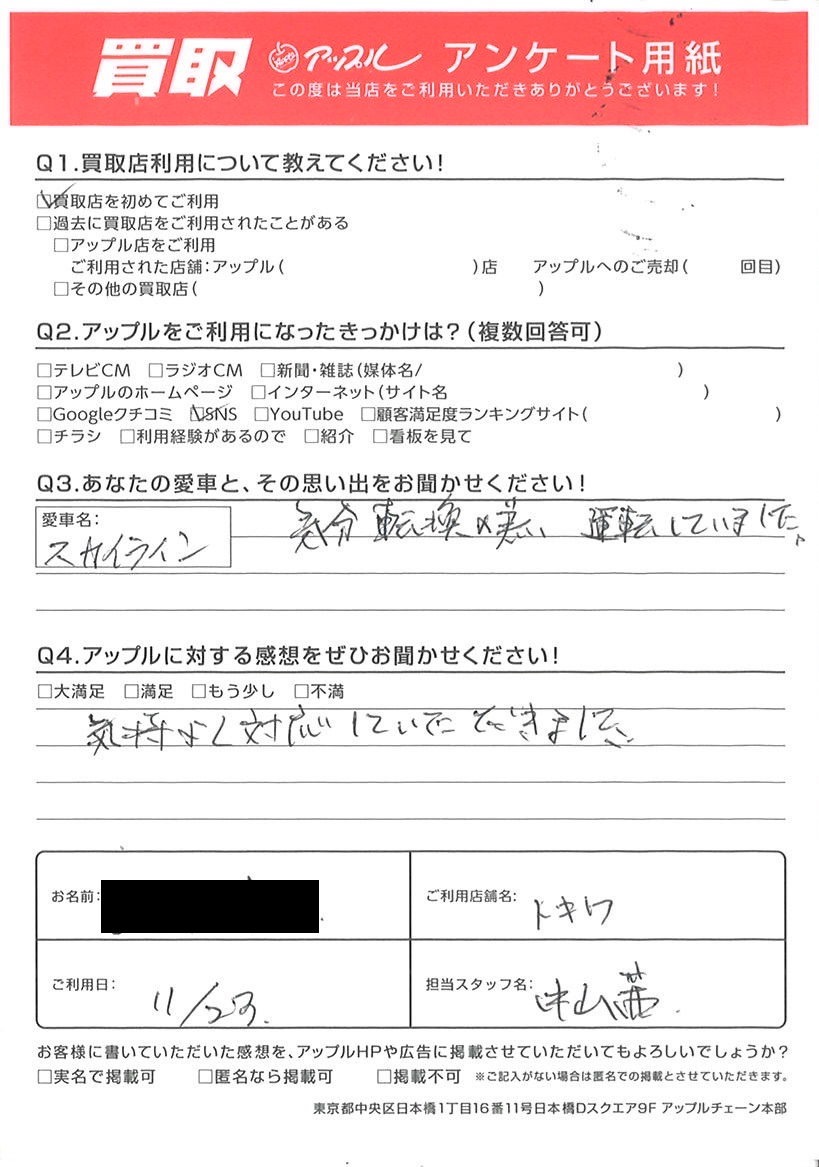 買取 アップル アンケート用紙
この度は当店をご利用いただきありがとうございます!
Q1.買取店利用について教えてください!
☑買取店を初めてご利用
□過去に買取店をご利用されたことがある
□アップル店をご利用
ご利用された店舗:アップル( )店 アップルへのご売却( 回目)
□その他の買取店( )
Q2.アップルをご利用になったきっかけは?(複数回答可)
□テレビCM □ラジオCM □新聞・雑誌(媒体名/ )
□アップルのホームページ □インターネット(サイト名 )
□Googleクチコミ ☑SNS □YouTube □顧客満足度ランキングサイト( )
□チラシ □利用経験があるので □紹介 □看板を見て
Q3.あなたの愛車と、その思い出をお聞かせください!
愛車名:
スカイライン
気分転換の 運転していました。
Q4.アップルに対する感想をぜひお聞かせください!
□大満足 □満足 □もう少し □不満
気持よく対応していただきました。
お名前:
ご利用店舗名:トキワ
ご利用日:11/23.
担当スタッフ名:中山茜.
お客様に書いていただいた感想を、アップルHPや広告に掲載させていただいてもよろしいでしょうか?
□実名で掲載可 □匿名なら掲載可 □掲載不可 ※ご記入がない場合は匿名での掲載とさせていただきます。
東京都中央区日本橋1丁目16番11号日本橋Dスクエア9F アップルチェーン本部